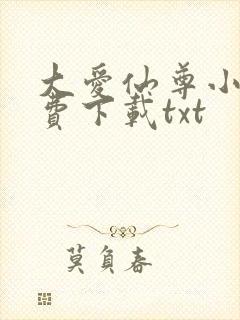 大愛仙尊小
費下載txt
莫負春